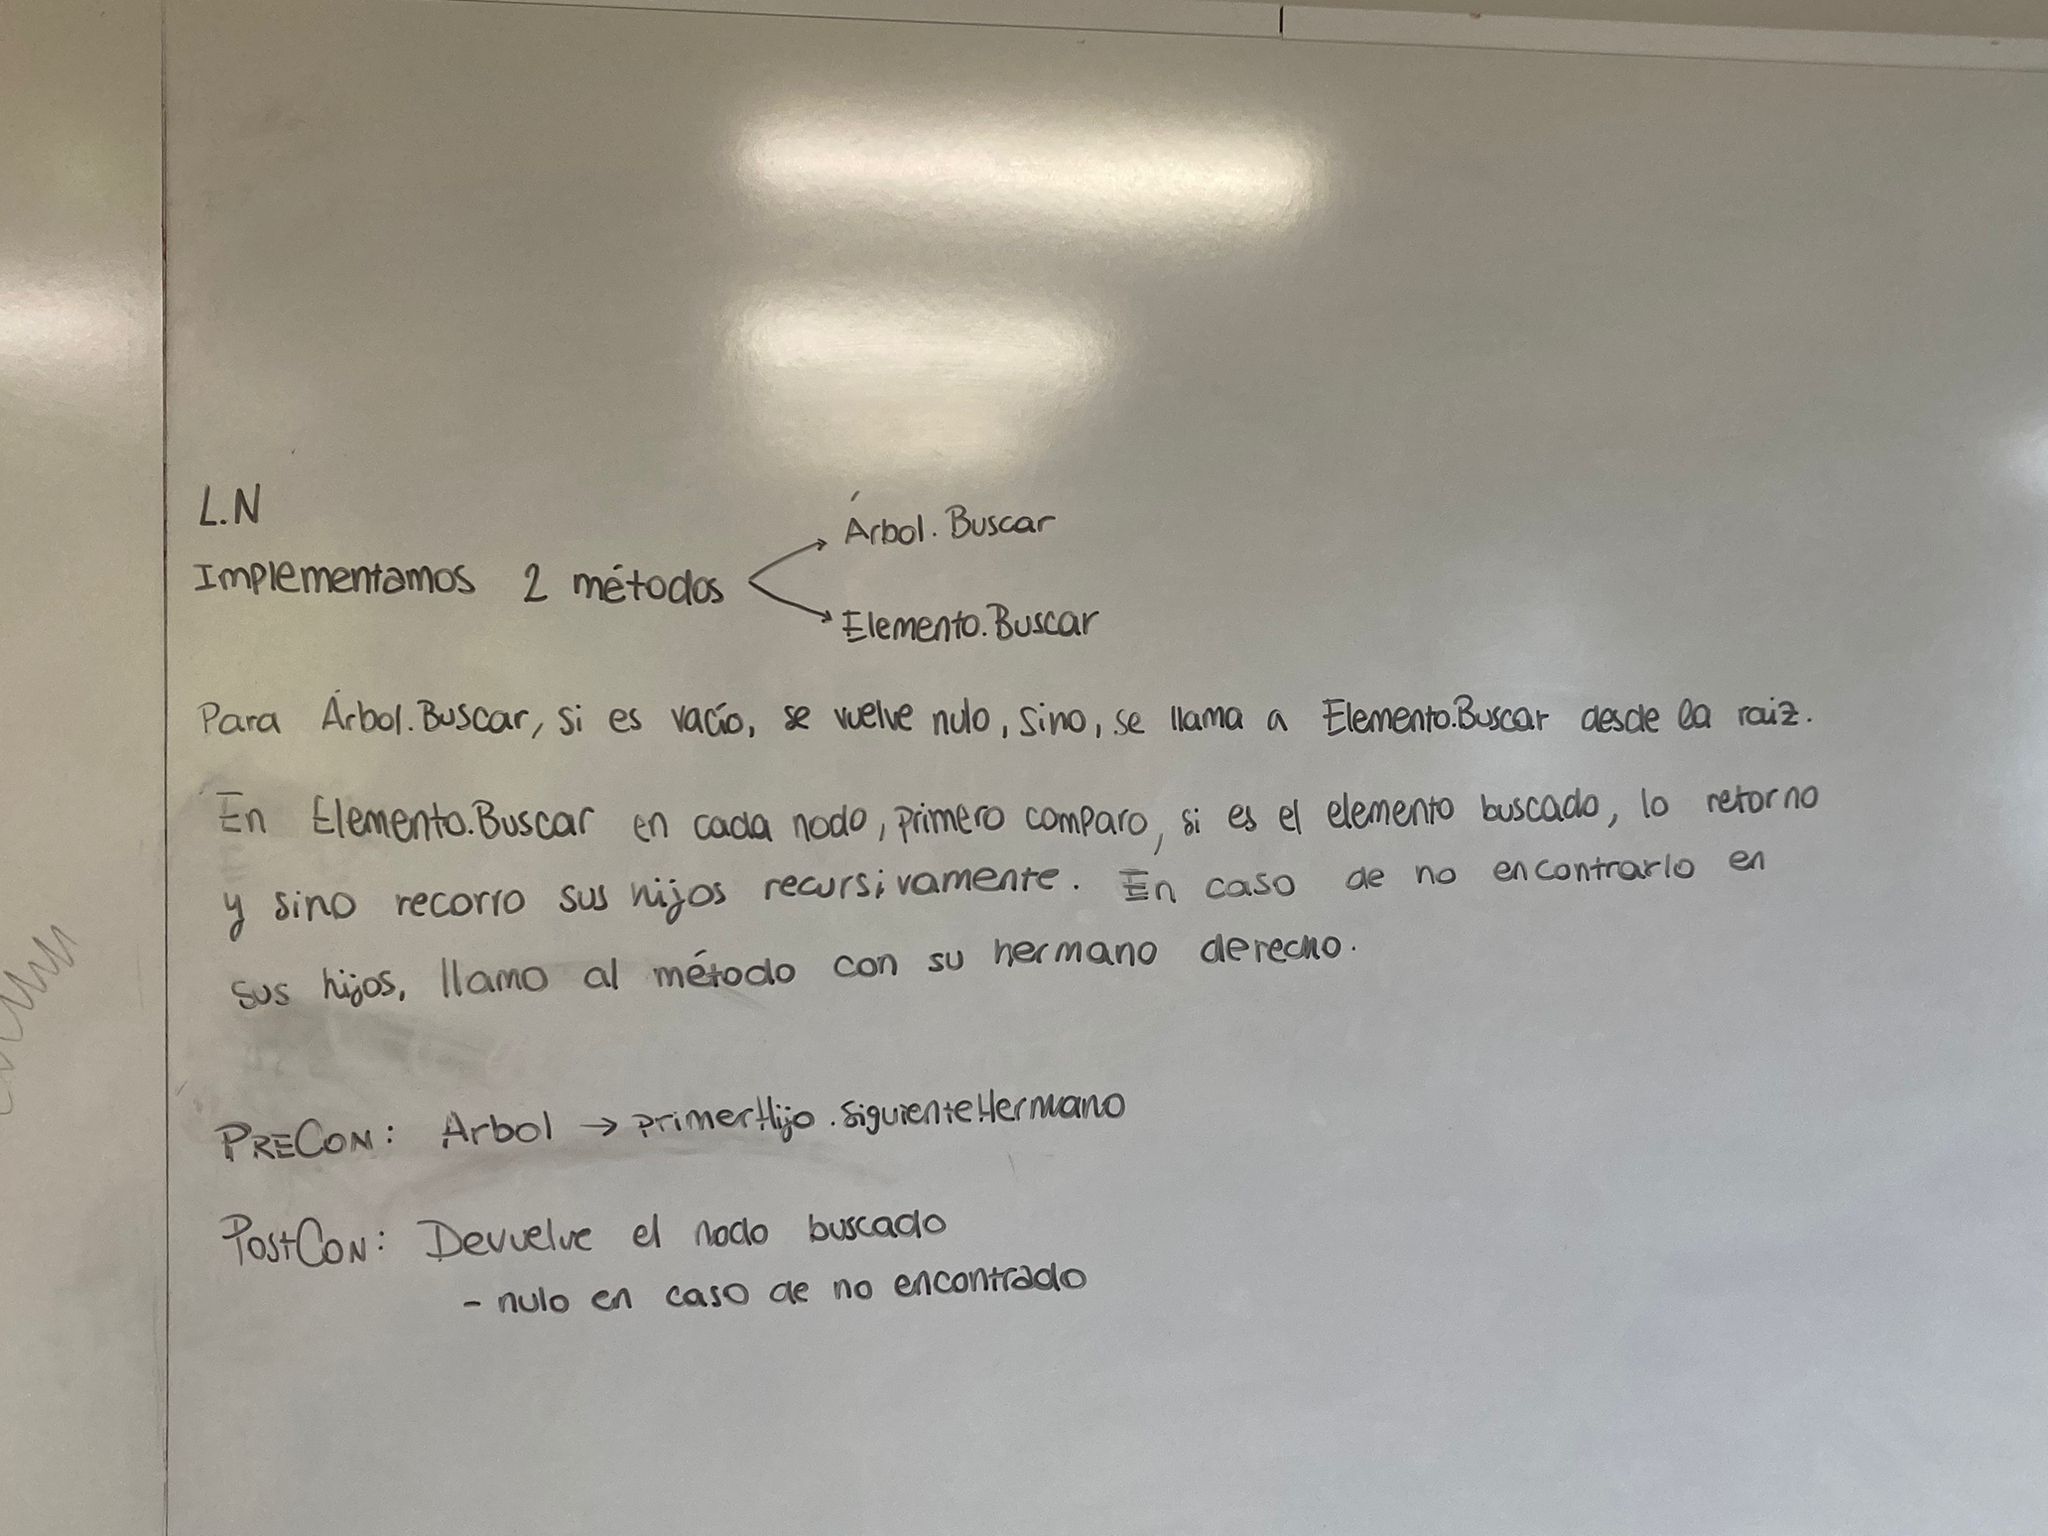 L.N
Árbol.Buscar
Implementamos 2 métodos
Elemento.Buscar
Para Árbol.Buscar, si es vacío, se vuelve nulo, sino, se llama a Elemento.Buscar desde la raiz.
En Elemento.Buscar en cada nodo, primero comparo, si es el elemento buscado, lo retorno
y sino recorro sus hijos recursivamente. En caso de no encontrarlo en
sus hijos, llamo al método con su hermano derecho.
PRECON: Arbol → primerHijo.SiguienteHermano
PostCON: Devuelve el nodo buscado
- nulo en caso de no encontrado